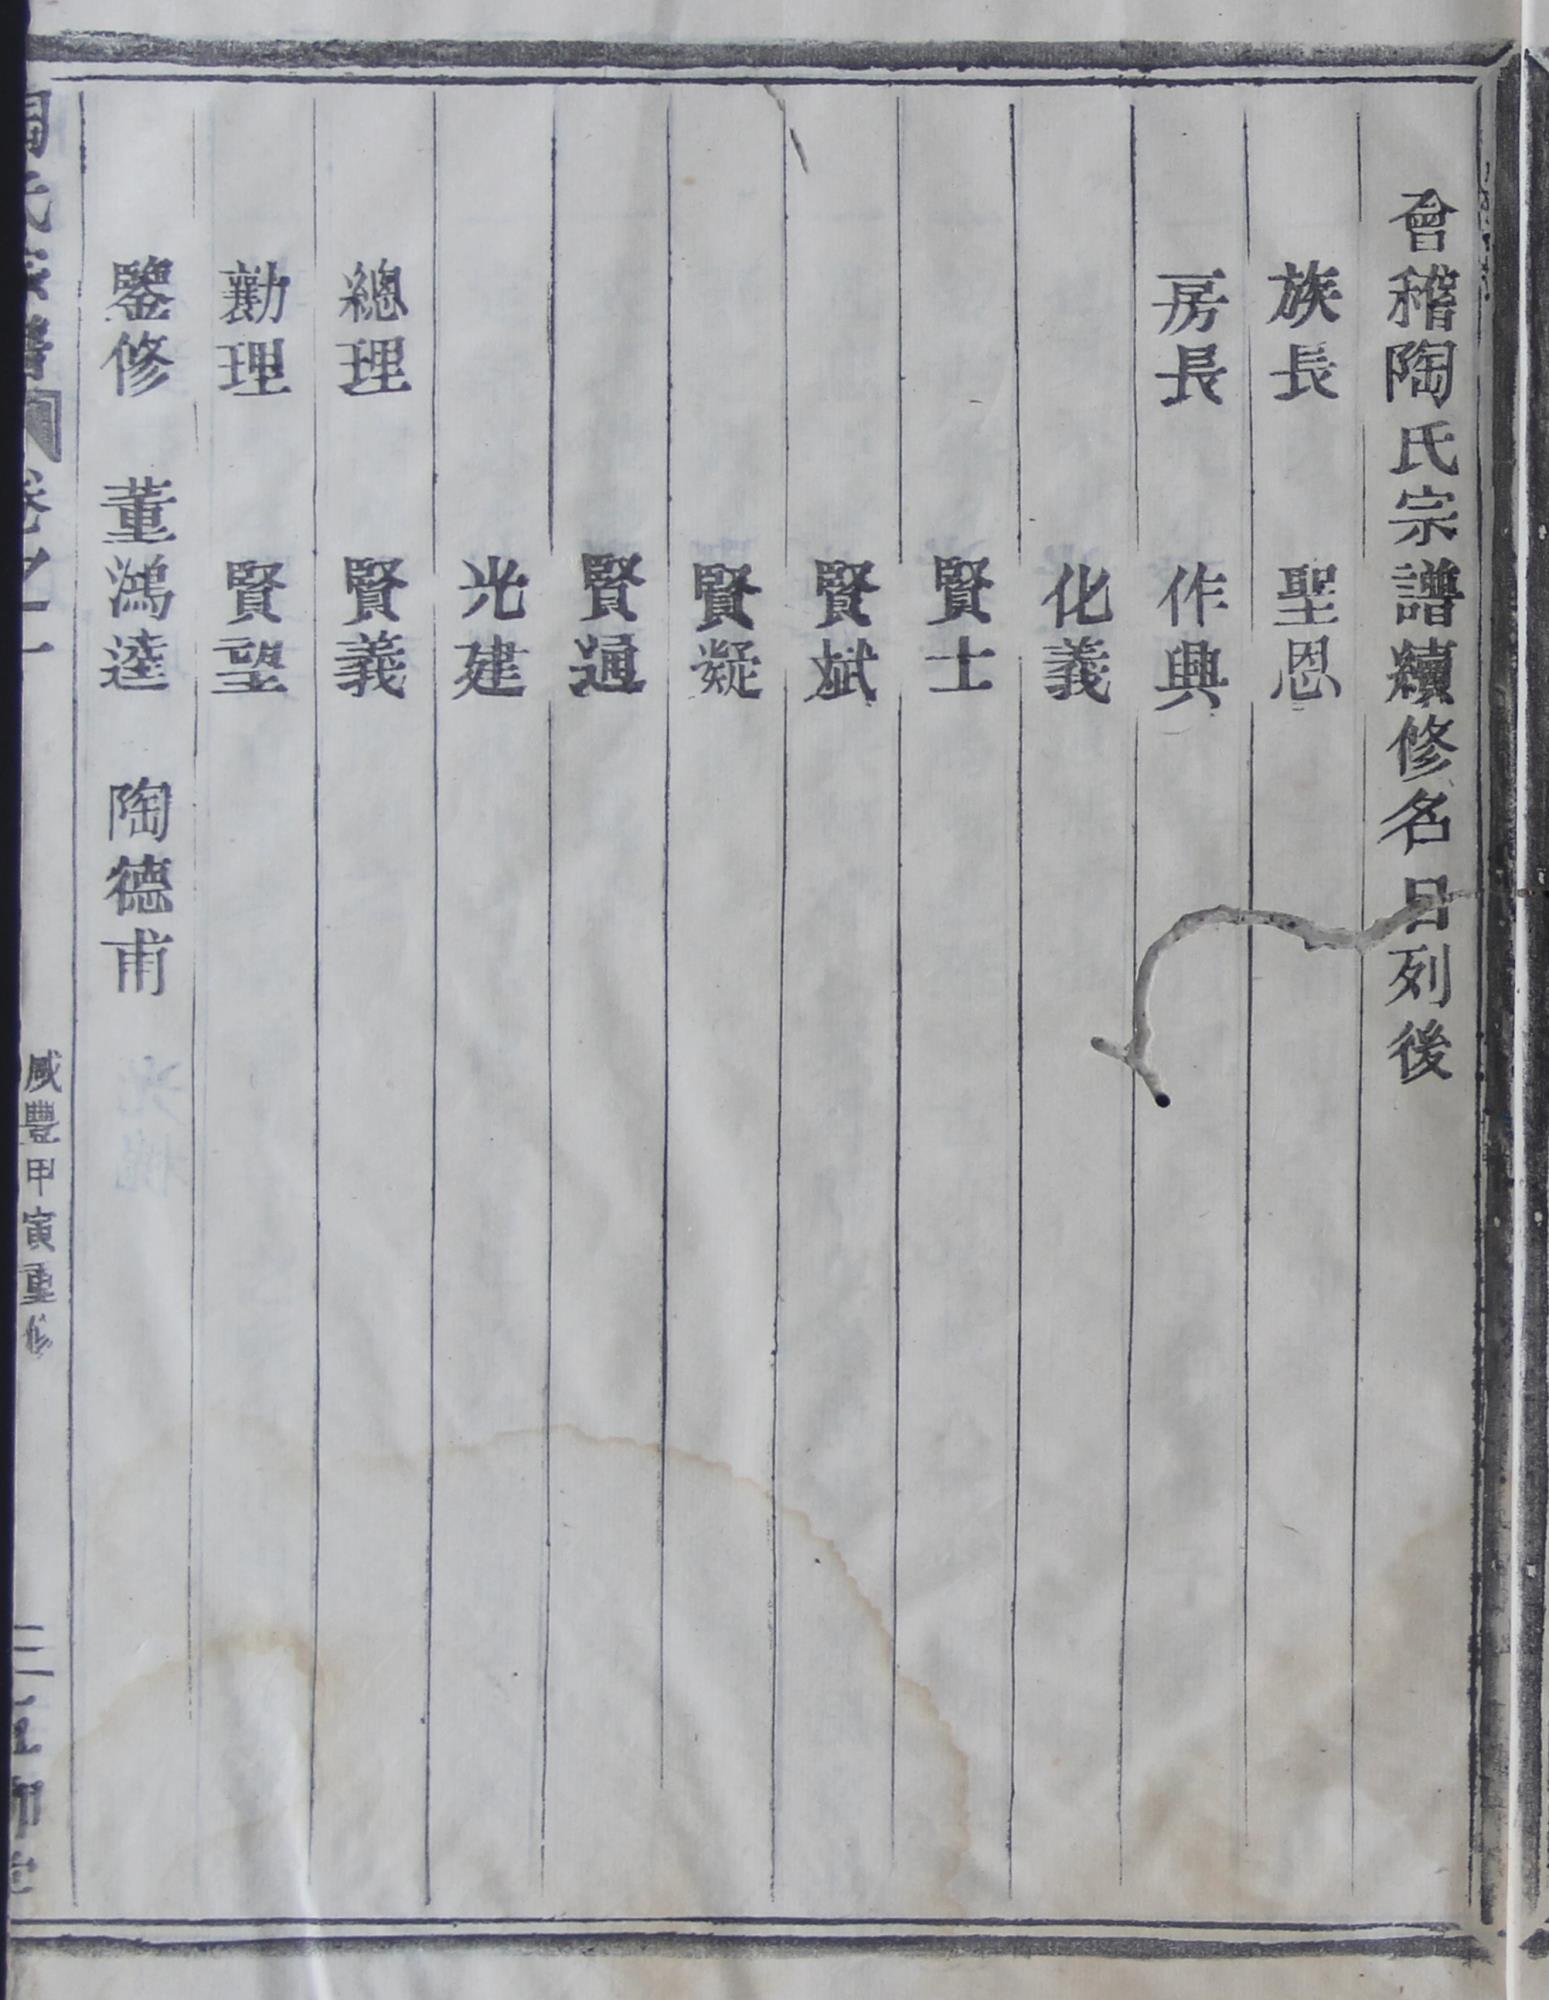 會稽陶氏宗譜續修名目列後
族長 聖恩
房長 作興
化義
賢士
賢斌
賢凝
賢通
光建
總理 賢義
勷理 賢望
鑒修 董鴻逵 陶德甫
陶氏宗譜 卷之一 咸豐甲寅重修